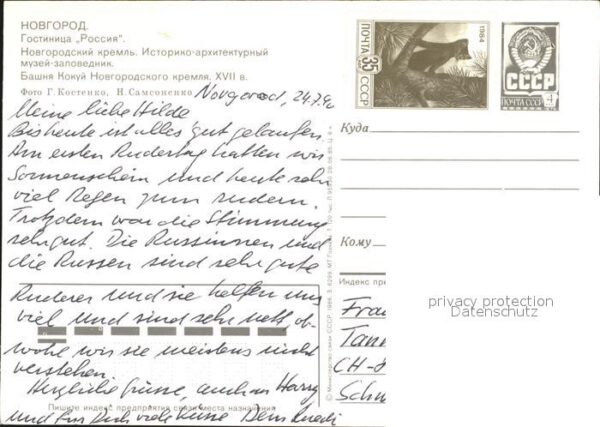 НОВГОРОД.
Гостиница „Россия".
Новгородский кремль. Историко-архитектурный
музей-заповедник.
Башня Кокуй Новгородского кремля. XVII в.
Фото Г. Костенко, Н. Самсоненко
Novgorod, 24.7.90
Meine liebe Hilde
Bis heute ist alles gut gelaufen.
Am ersten Rudertag hatten wir
Sonnenschein und heute sehr
viel Regen zum rudern.
Trotzdem war die Stimmung
sehr gut. Die Russinnen und
die Russen sind sehr gute
Ruderer und sie helfen uns
viel und sind sehr nett, ob-
wohl wir sie meistens nicht
verstehen.
Herzliche Grüsse, auch an Harry
und für Dich viele Küsse Dein Ruedi
Пишите индекс предприятия связи места назначения
ПОЧТА
35
СССР
1984
СССР
ПОЧТА СССР
Куда
Кому
Индекс пре
Frau
CH-8
privacy protection
Datenschutz
© Министерство связи СССР, 1986.